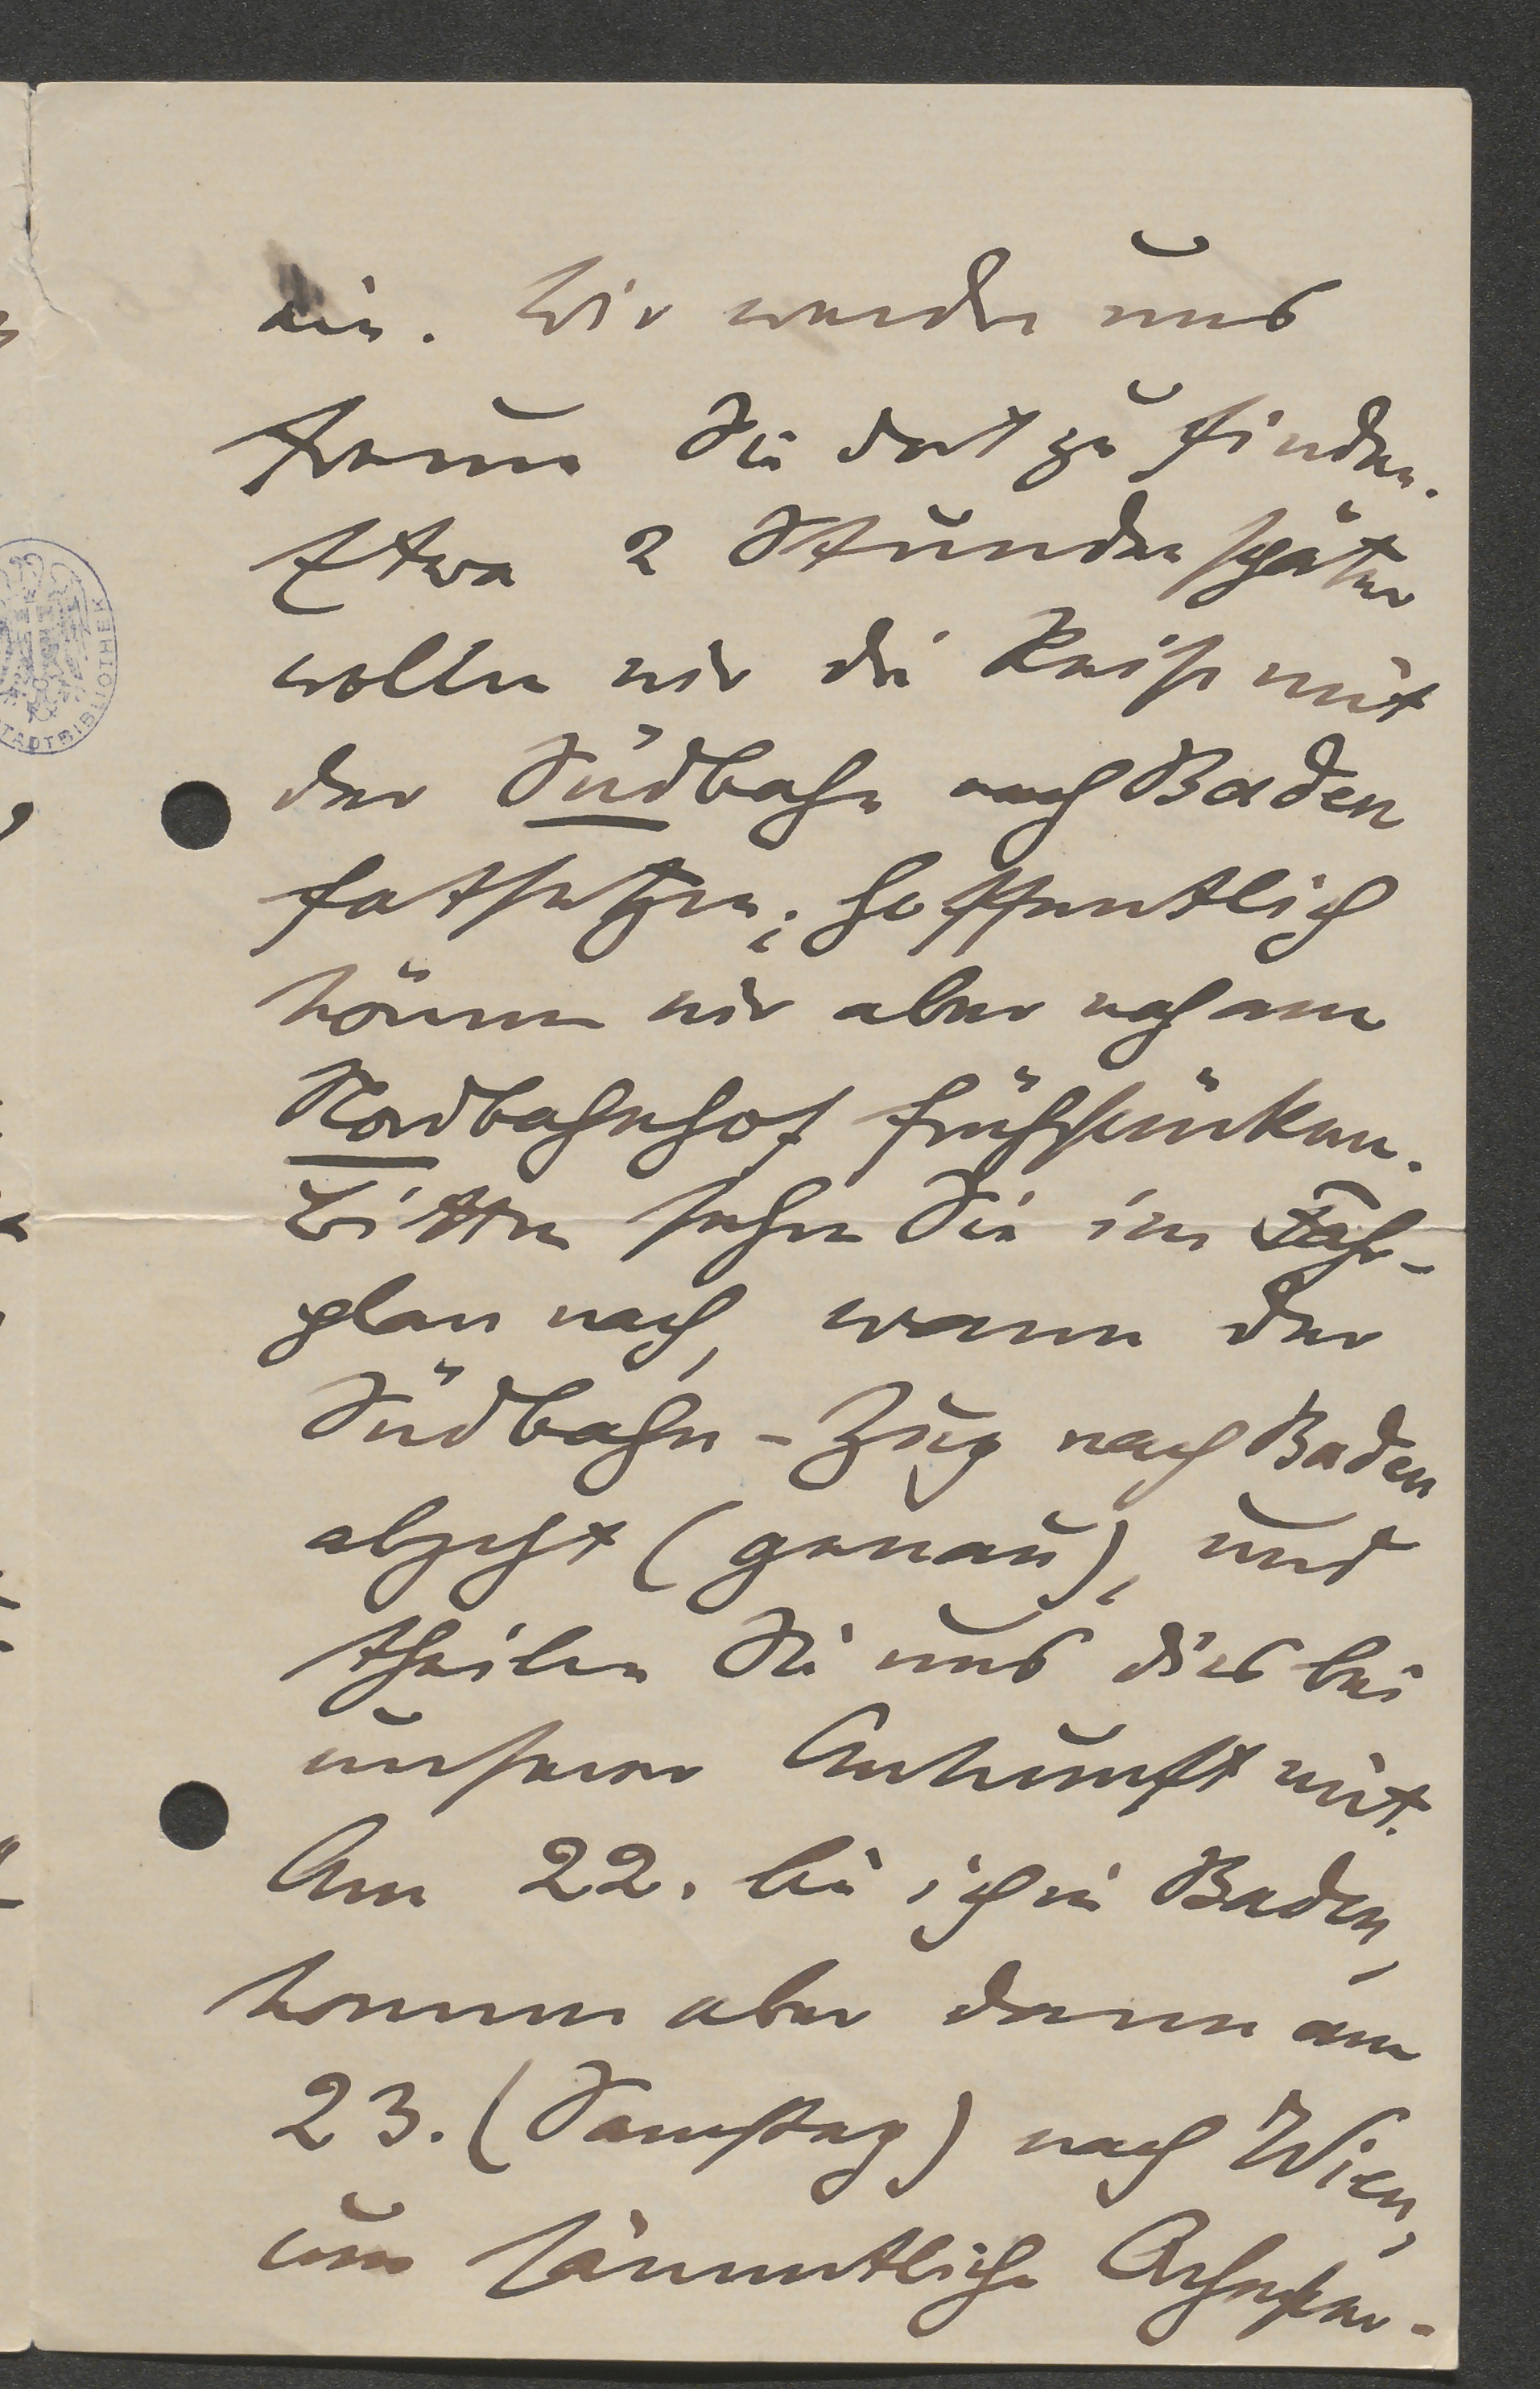 ein. Wir werden uns
freuen Sie dort zu finden.
Etwa 2 Stunden später
wollen wir die Reise mit
der Südbahn nach Baden
fortsetzen; hoffentlich
können wir aber noch am
Nordbahnhof frühstücken.
Bitten sehen Sie im Fahr-
plan nach, wann der
Südbahn-Zug nach Baden
abgeht (genau), und
theilen Sie uns dies bei
unserer Ankunft mit.
Am 22. bin ich in Baden,
komme aber dann am
23. (Samstag) nach Wien,
um sämmtliche Orchester-
STADTBIBLIOTHEK